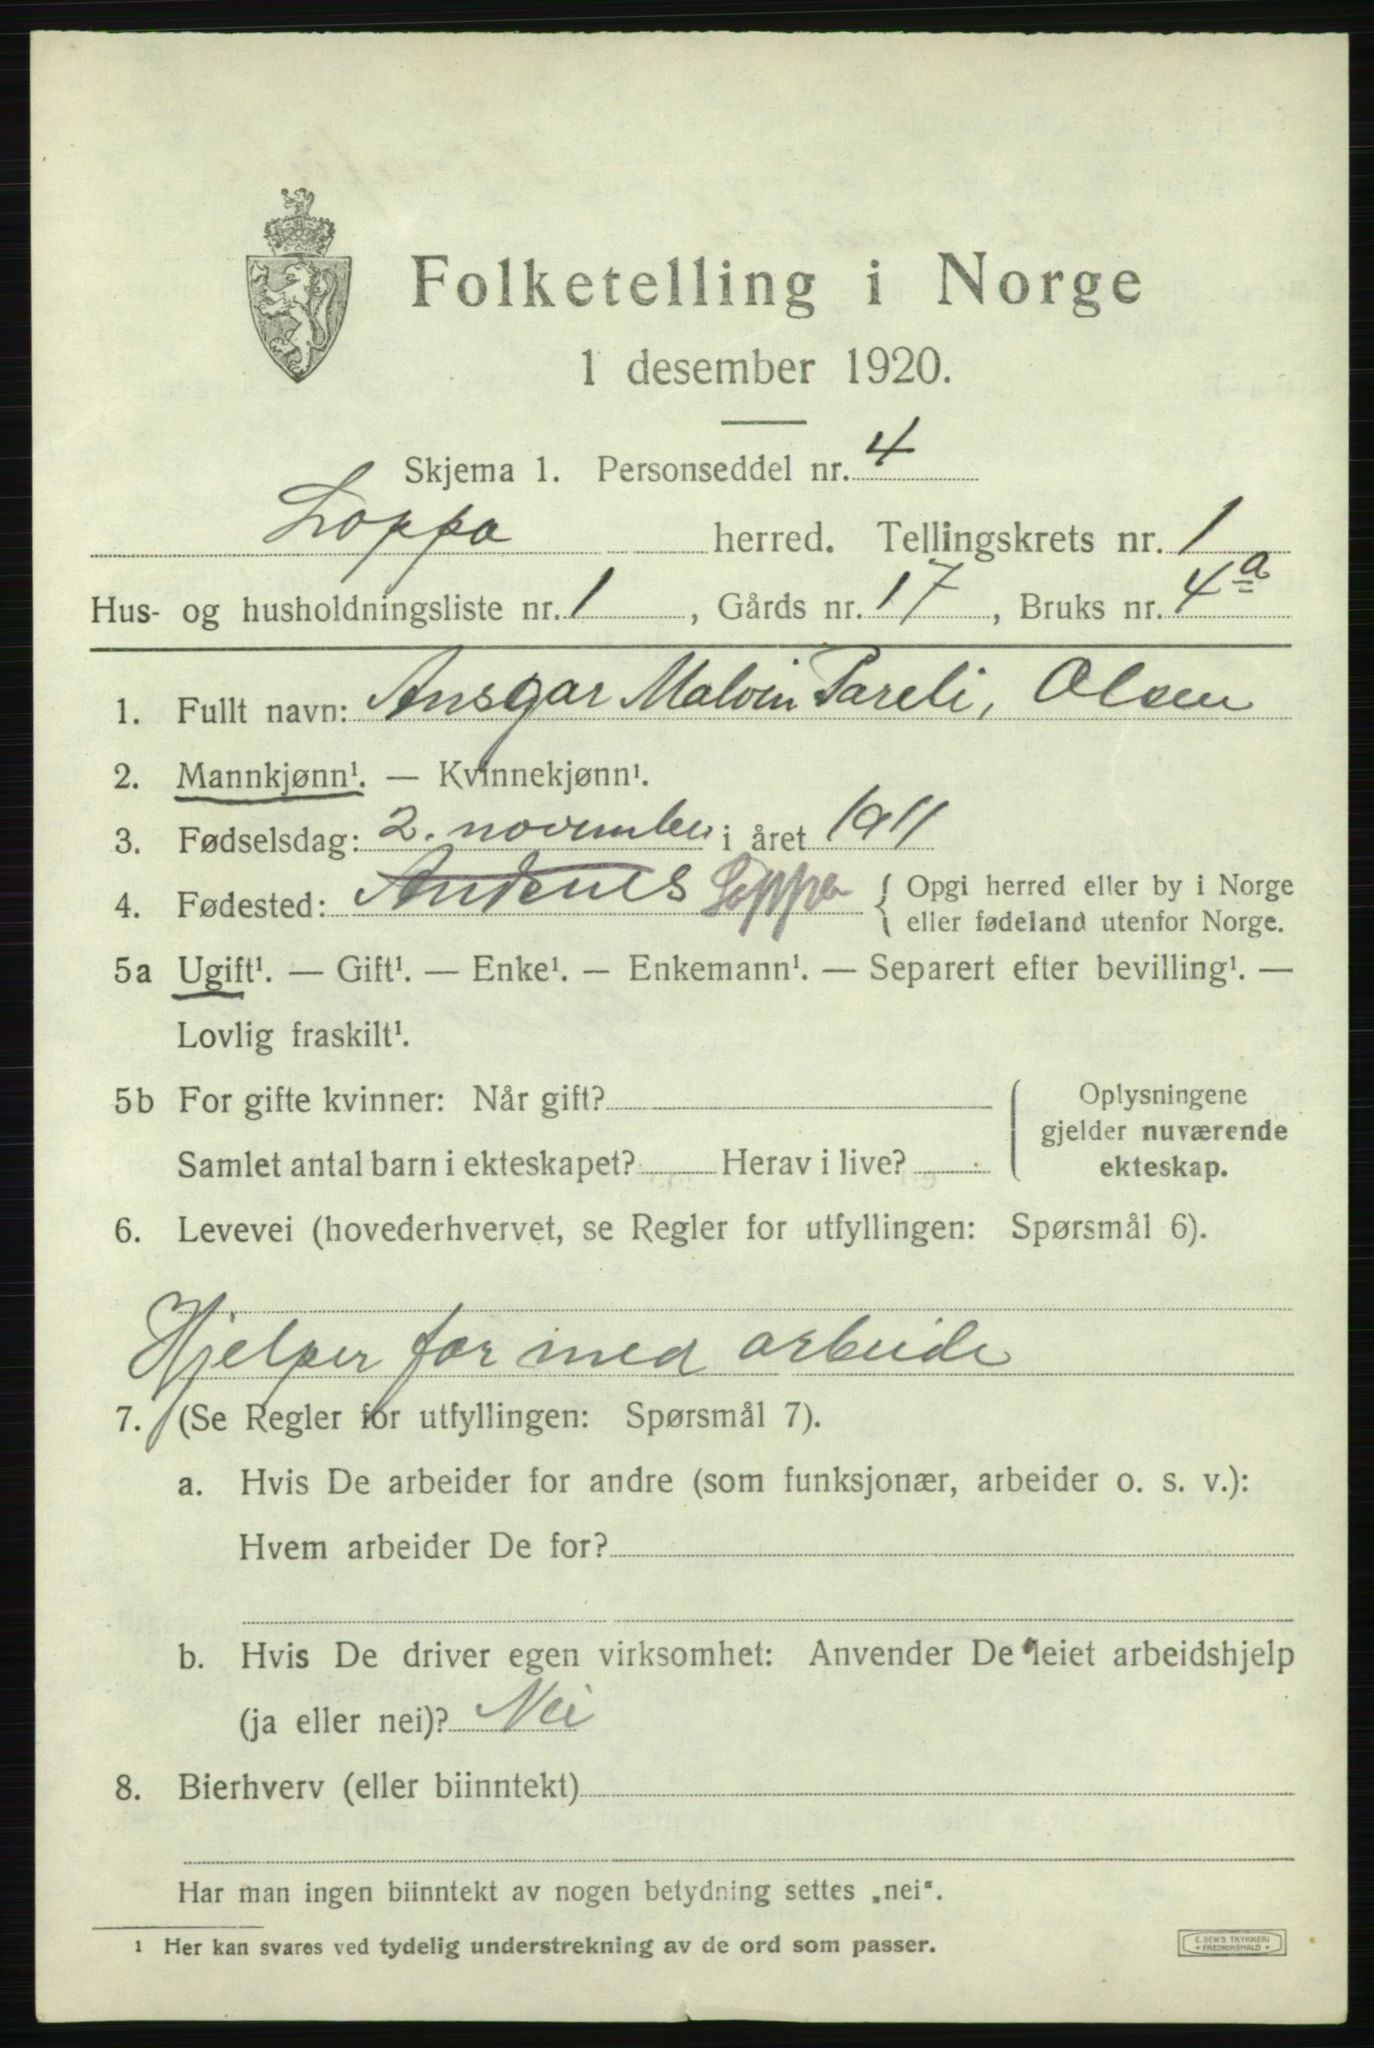 Folketelling i Norge
1 desember 1920.
Skjema 1. Personseddel nr. 4
Loppa herred. Tellingskrets nr. 1
Hus- og husholdningsliste nr. 1, Gårds nr. 17, Bruks nr. 4a
1. Fullt navn: Ansgar Malvin Pareli, Olsen
2. Mannkjønn¹. — Kvinnekjønn¹.
3. Fødselsdag: 2. november i året 1911
4. Fødested: Andenes Loppa { Opgi herred eller by i Norge
eller fødeland utenfor Norge.
5a Ugift¹. — Gift¹. — Enke¹. — Enkemann¹. — Separert efter bevilling¹. —
Lovlig fraskilt¹.
5b For gifte kvinner: Når gift?
Samlet antal barn i ekteskapet? Herav i live?
Oplysningene
gjelder nuværende
ekteskap.
6. Levevei (hovederhvervet, se Regler for utfyllingen: Spørsmål 6).
Hjelper far med arbeide
7. (Se Regler for utfyllingen: Spørsmål 7).
a. Hvis De arbeider for andre (som funksjonær, arbeider o. s. v.):
Hvem arbeider De for?
b. Hvis De driver egen virksomhet: Anvender De leiet arbeidshjelp
(ja eller nei)? Nei
8. Bierhverv (eller biinntekt)
Har man ingen biinntekt av nogen betydning settes „nei“.
¹ Her kan svares ved tydelig understrekning av de ord som passer.
E. SEM'S TRYKKERI
FREDRIKSHALD